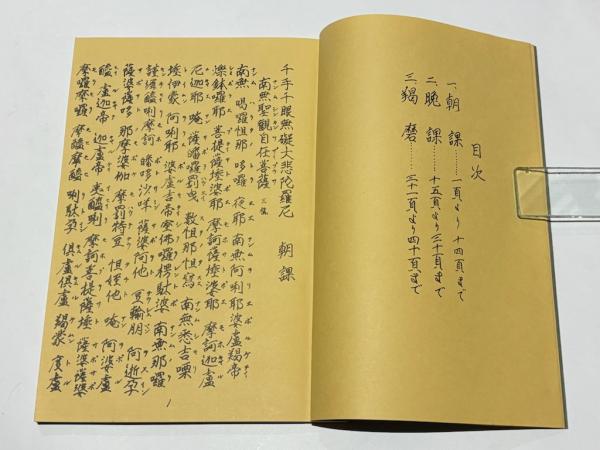 目次
一、朝　課……一頁より十四頁まで
二、晩　課……十五頁より三十頁まで
三、羯　磨……三十一頁より四十頁まで
千手千眼無礙大悲陀羅尼　朝課
南無聖觀自在菩薩 三揖
南無 喝囉怛那 哆囉 夜耶 南無阿唎耶 婆盧羯帝
爍鉢囉耶 菩提薩埵婆耶 摩訶薩埵婆耶 摩訶迦盧
尼迦耶 唵 薩皤囉罰曳 数怛那怛寫 南無悉吉嘌
埵伊蒙 阿唎耶 婆盧吉帝室佛囉楞馱婆 南無那囉
謹墀醯唎摩訶 皤哆沙咩 薩婆阿他 豆輸朋 阿逝孕
薩婆薩哆 那摩婆伽 摩罰特豆 怛姪他 唵 阿婆盧
醯 盧迦帝 迦盧帝 夷醯唎 摩訶菩提薩埵 薩婆薩婆
摩囉摩囉 摩醯摩醯 唎馱孕 俱盧俱盧 羯蒙 度盧
1